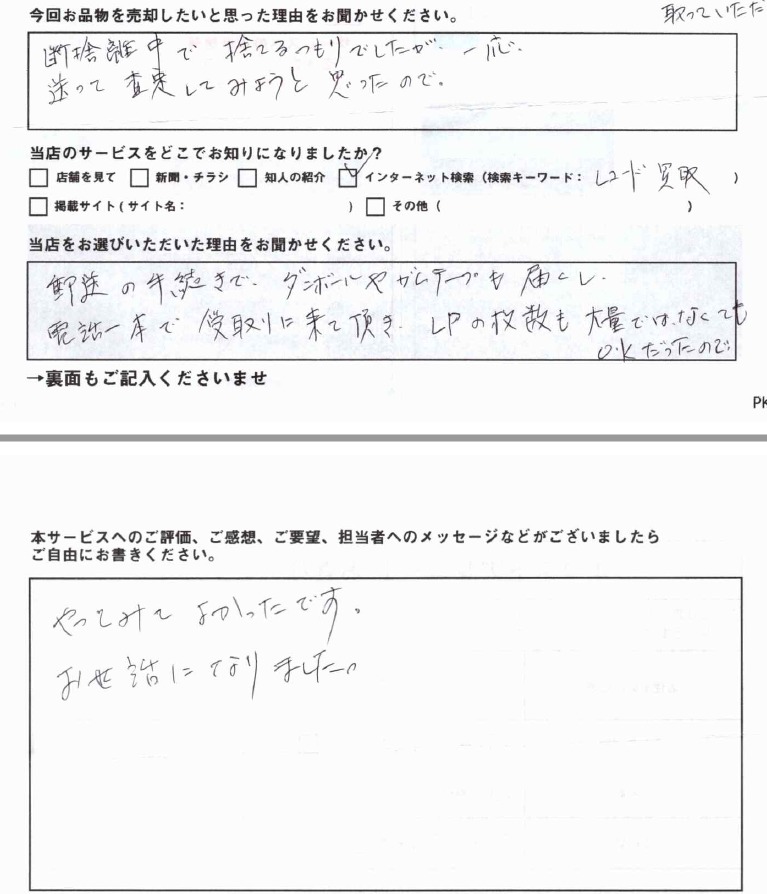 取っていただ
今回お品物を売却したいと思った理由をお聞かせください。
断捨離中で捨てるつもりでしたが、一応、
送って査定してみようと思ったので。
当店のサービスをどこでお知りになりましたか？
店舗を見て 新聞・チラシ 知人の紹介 インターネット検索（検索キーワード： レコード買取 ）
掲載サイト（サイト名： ） その他（ ）
当店をお選びいただいた理由をお聞かせください。
郵送の手続きで、ダンボールやガムテープも届くし、
電話一本で受取りに来て頂き、LPの枚数も大量ではなくても
OKだったので。
→裏面もご記入くださいませ
PK
本サービスへのご評価、ご感想、ご要望、担当者へのメッセージなどがございましたら
ご自由にお書きください。
やってみてよかったです。
お世話になりました。